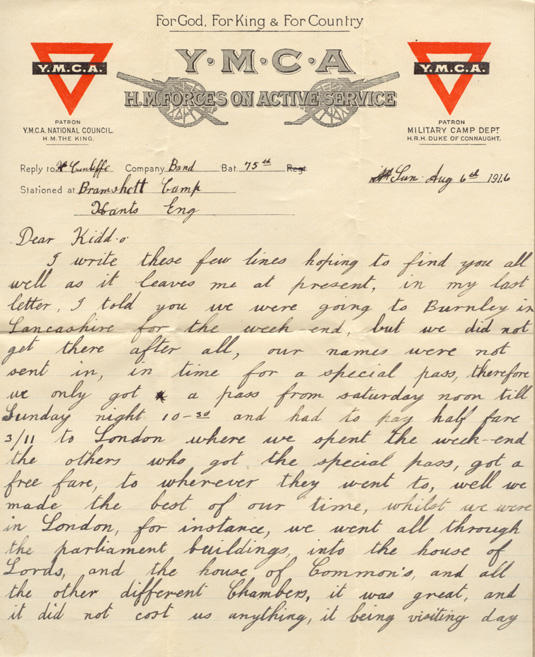 For God, For King & For Country
Y·M·C·A
H.M. FORCES ON ACTIVE SERVICE
Y.M.C.A.
PATRON
Y.M.C.A. NATIONAL COUNCIL.
H.M. THE KING.
Y.M.C.A.
PATRON
MILITARY CAMP DEPT.
H.R.H. DUKE OF CONNAUGHT.
Reply to Cunliffe Company Band Bat. 75th Regt
Stationed at Bramshott Camp
Hants Eng
Sun Aug 6th 1916
Dear Kidd-o
I write these few lines hoping to find you all
well as it leaves me at present, in my last
letter, I told you we were going to Burnley in
Lancashire for the week-end, but we did not
get there after all, our names were not
sent in, in time for a special pass, therefore
we only got a pass from saturday noon till
Sunday night 10-30 and had to pay half fare
3/11 to London where we spent the week-end
the others who got the special pass, got a
free fare, to wherever they went to, well we
made the best of our time, whilst we were
in London, for instance, we went all through
the parliament buildings, into the house of
Lords, and the house of Common's, and all
the other different Chambers, it was great, and
it did not cost us anything, it being visiting day